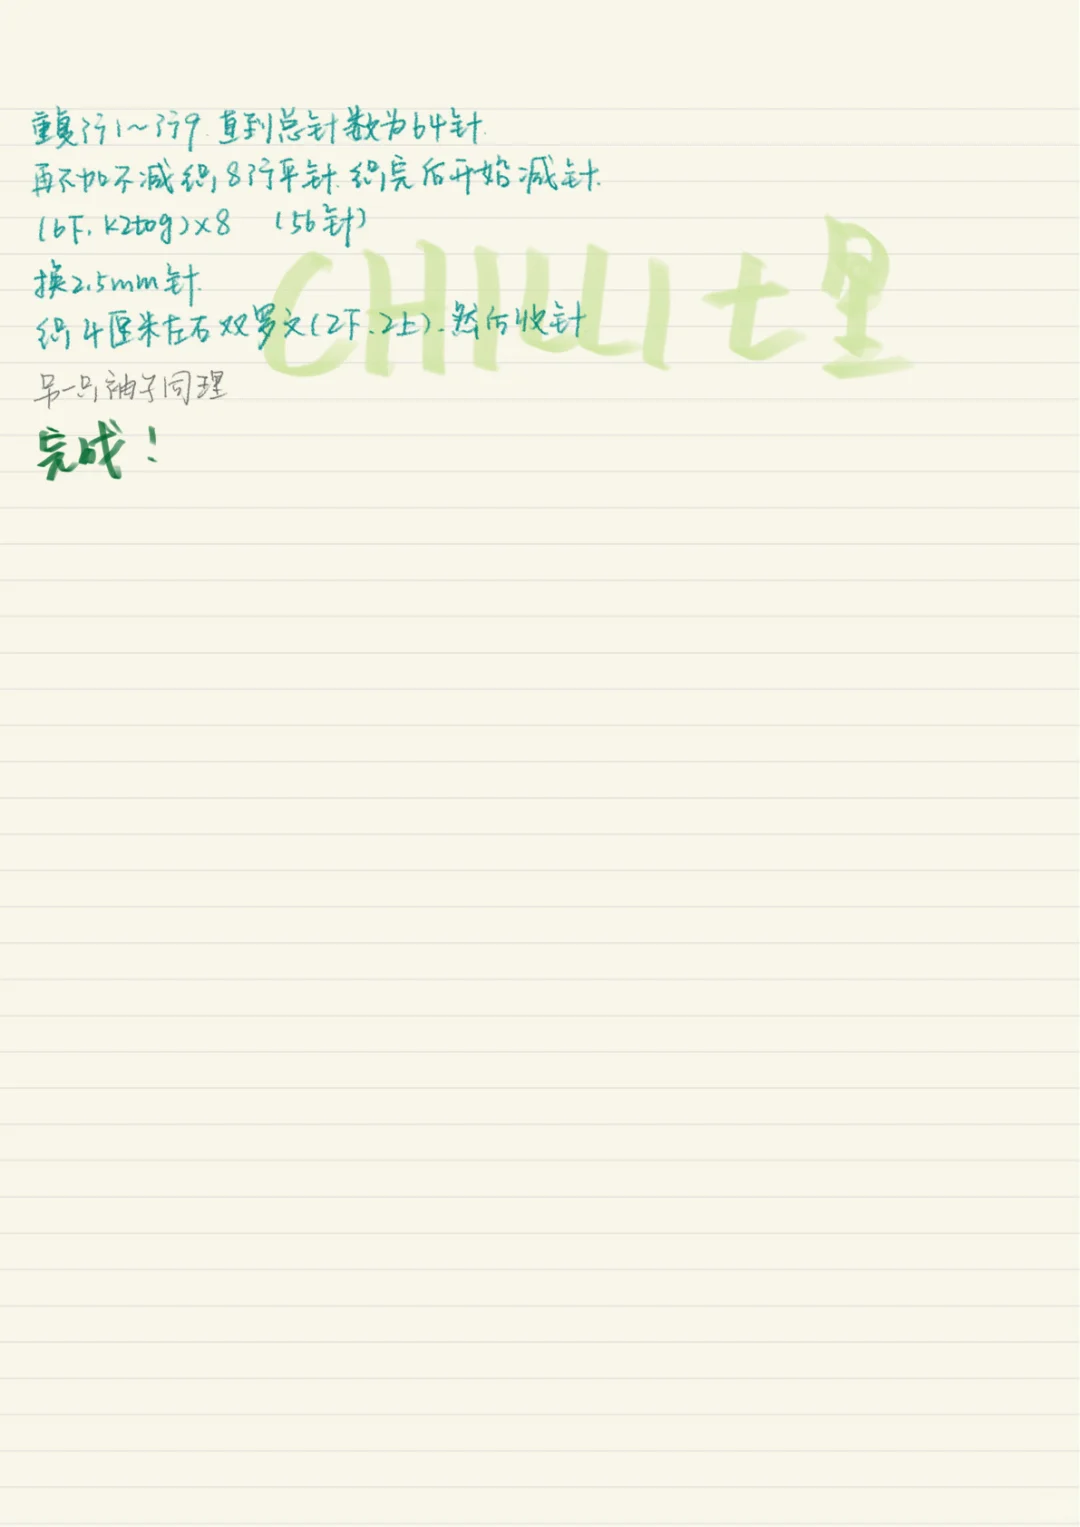 重复行1~行9.直到总针数为64针.
再不加不减织8行平针.织完后开始减针.
(6下,k2tog)×8 (56针)
换2.5mm针.
织4厘米左右双罗文(2下.2上).然后收针
另一只袖子同理
完成!
CHILLI七里